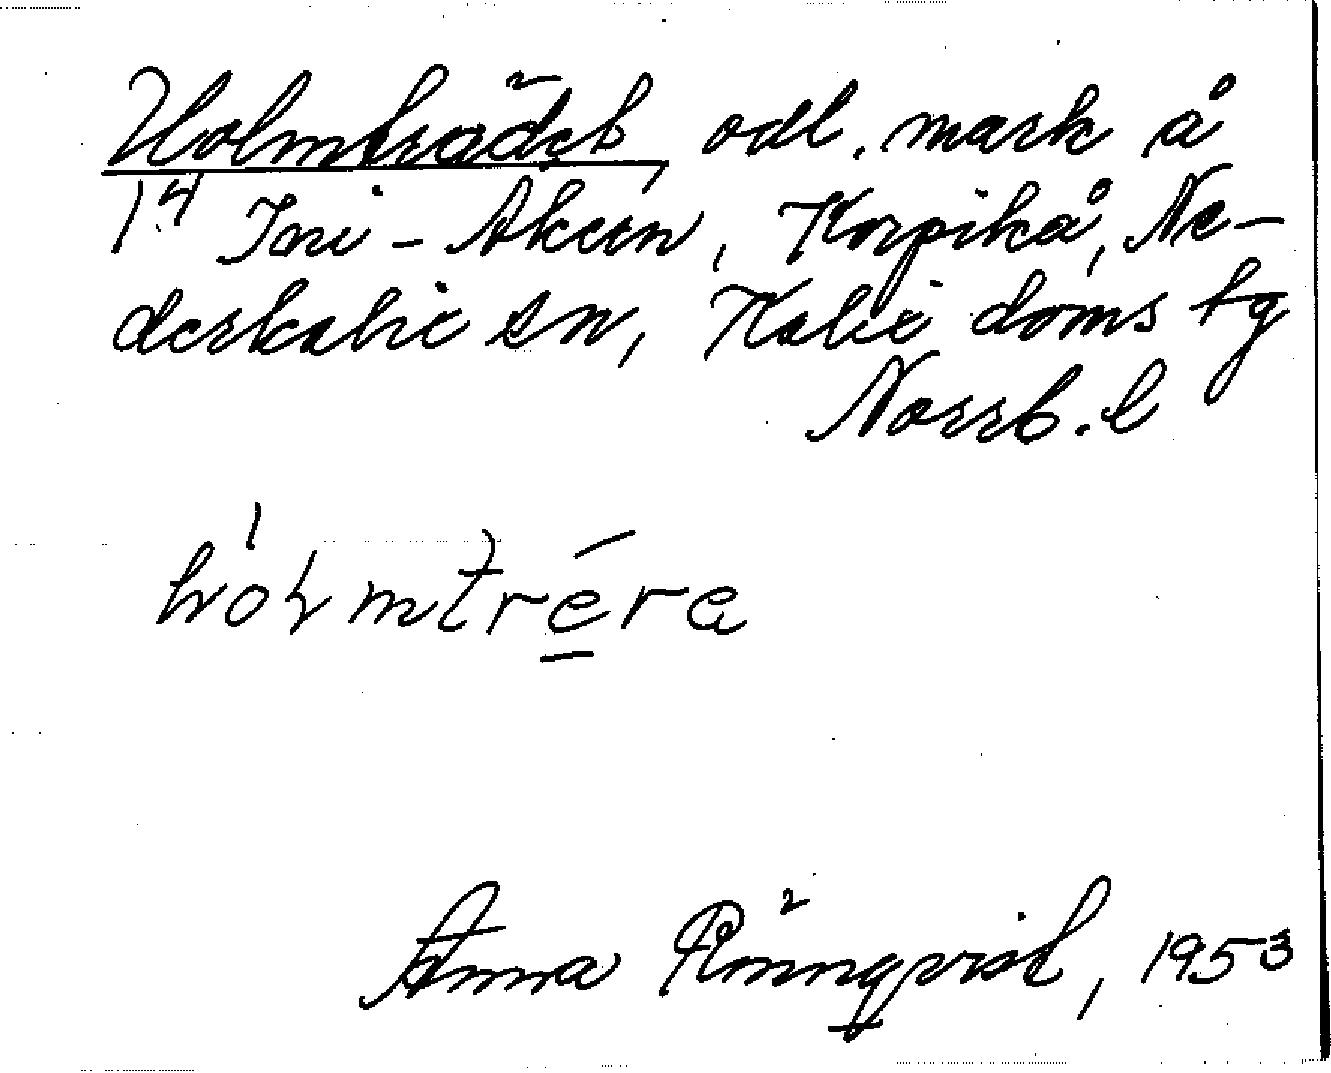 Holmträdet, odl. mark å
1⁴ Jori-Akun, Korpikå, Ne-
derkalix sn, Kalix doms tg
Norrb. l
hólmtrére
Anna Rönnqvist, 1953